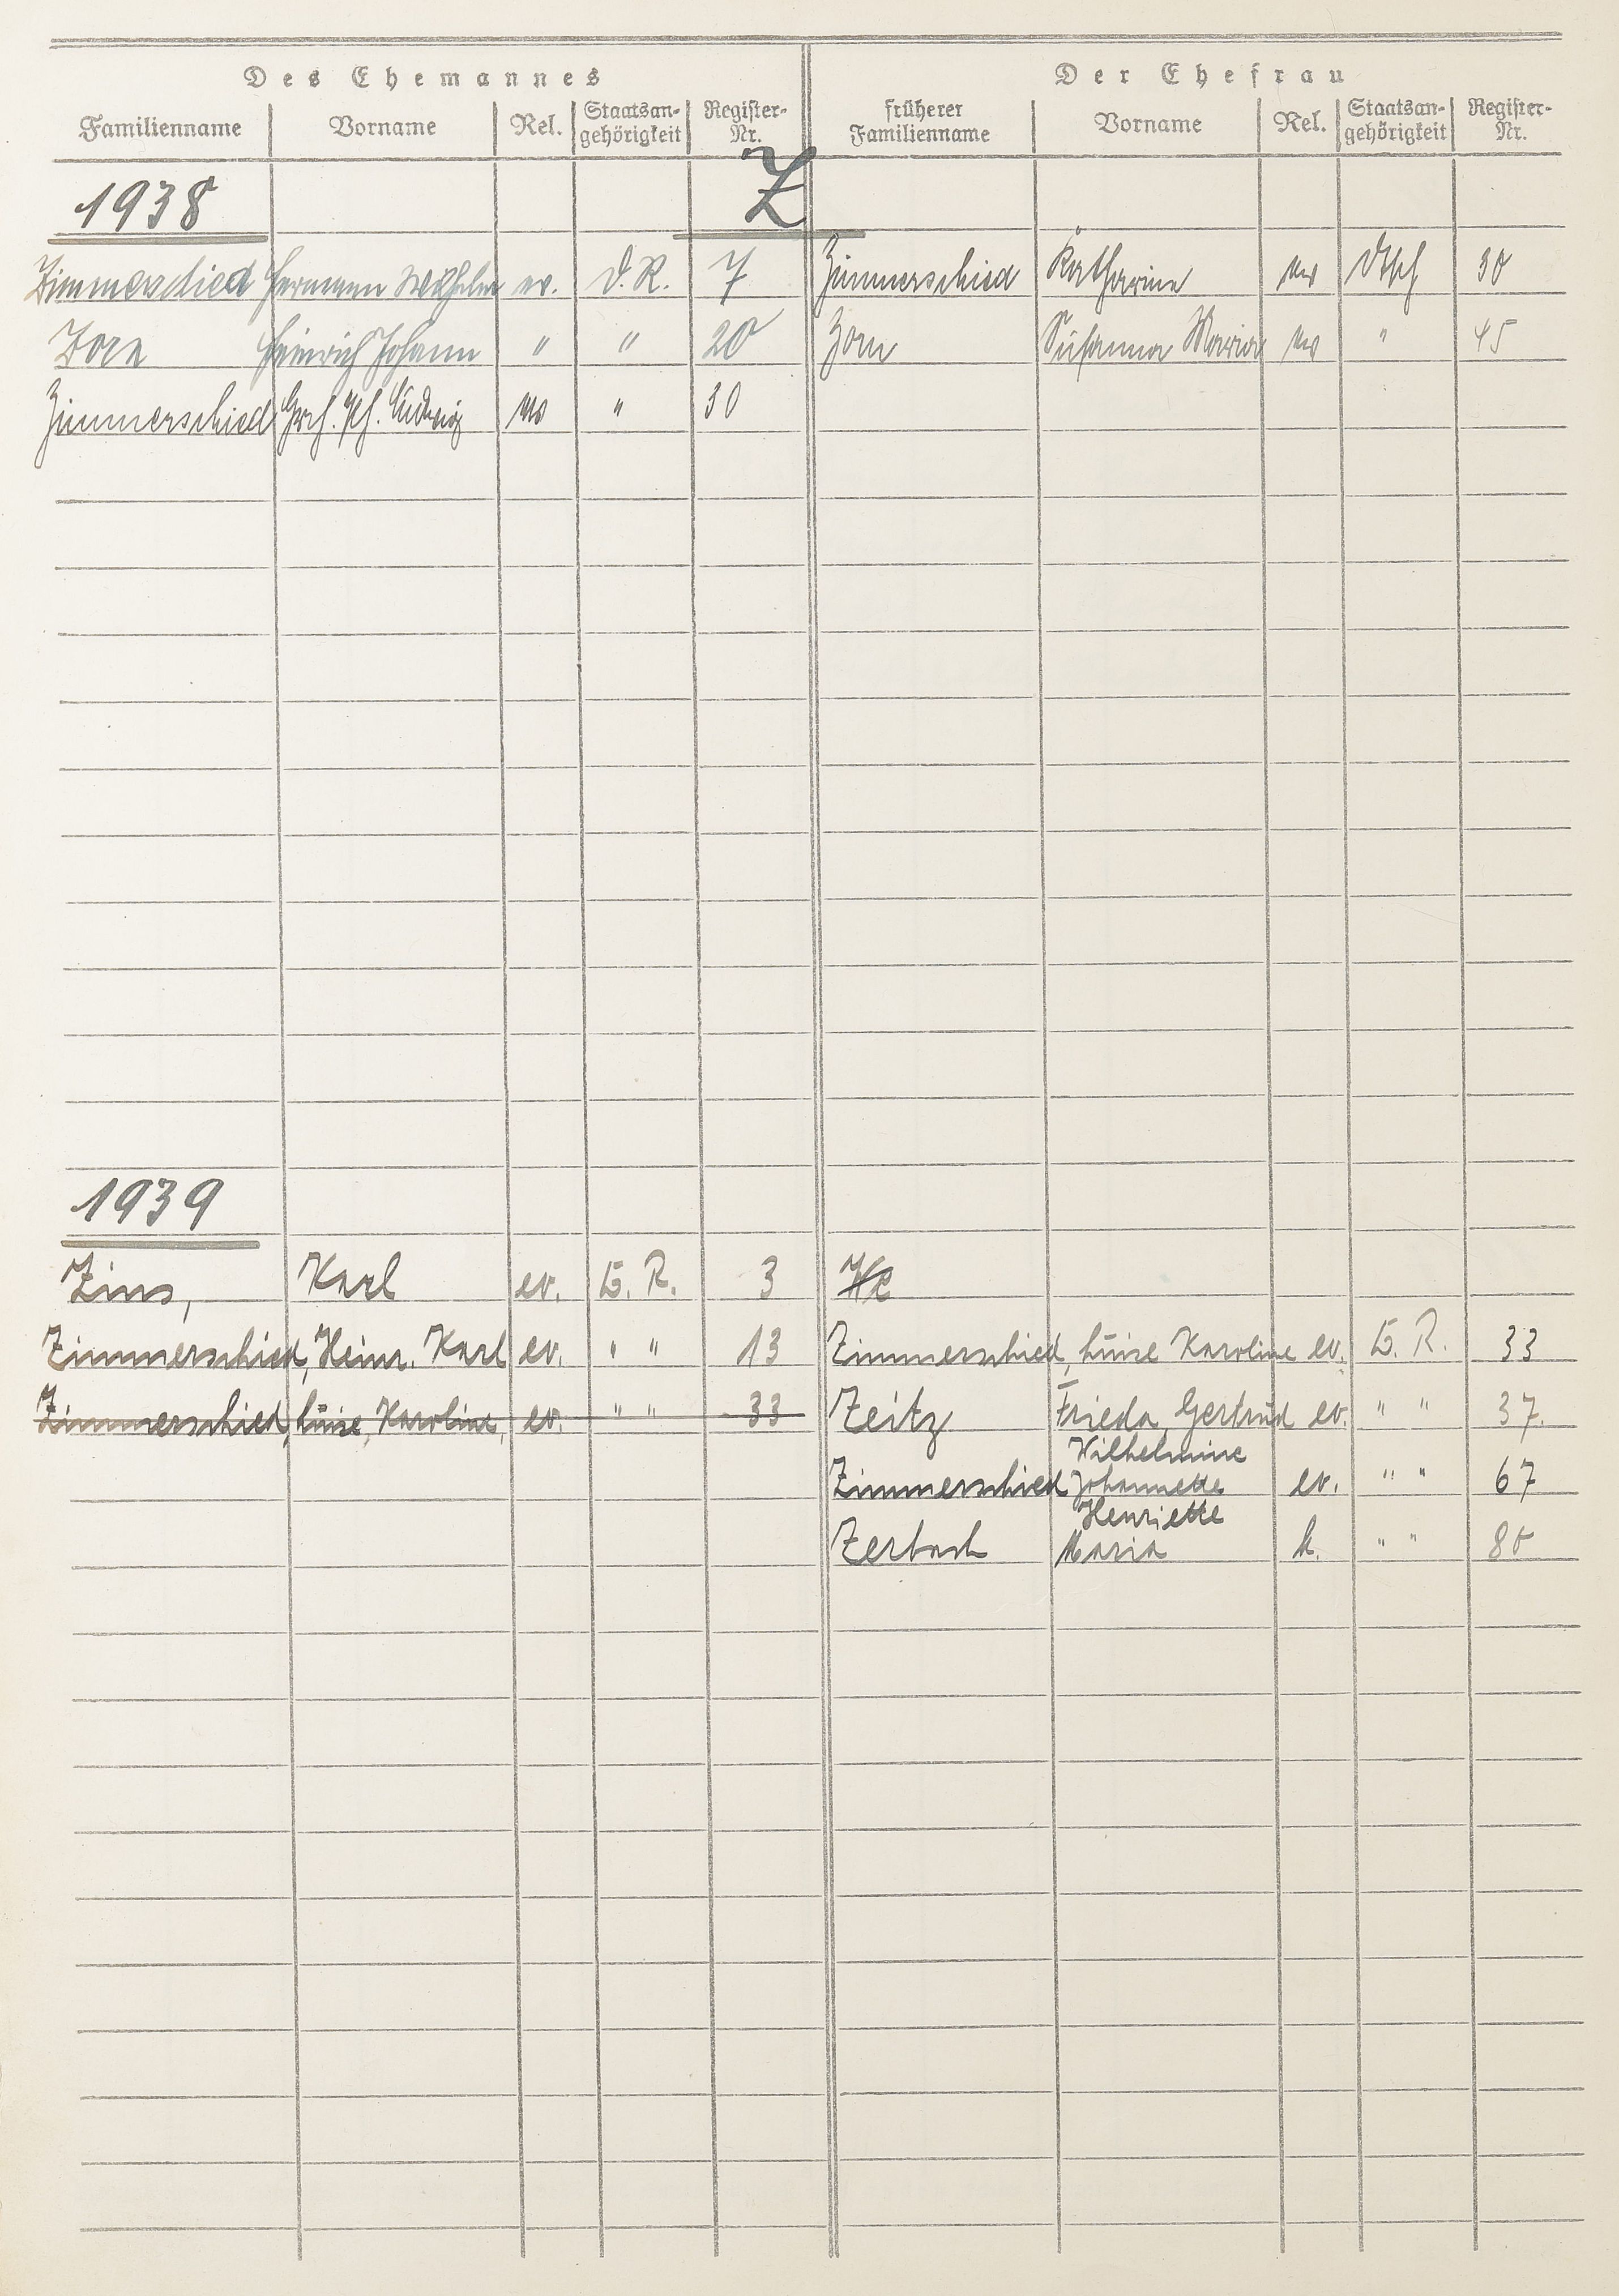 Des Ehemannes Der Ehefrau
Familienname Vorname Rel. Staatsan-gehörigkeit Register-Nr. früherer Familienname Vorname Rel. Staatsan-gehörigkeit Register-Nr.
1938 Z
Zimmerschied Hermann Wilhelm ev. D.R. 7 Zimmerschied Katharina ev Dtsch 30
Zorn Heinrich Johann " " 20 Zorn Susanna Maria ev " 45
Zimmerschied Ludwig ev " 30
1939
Zins, Karl ev. D.R. 3
Zimmerschied, Heinr. Karl ev. " " 13 Zimmerschied, Luise Karoline ev. D.R. 33
Zimmerschied, Luise, Karoline, ev. " " 33 Zeitz Frieda, Gertrud ev. " " 37.
Zimmerschied Wilhelmine Johannette Henriette ev. " " 67
Zerbach Maria k. " " 80